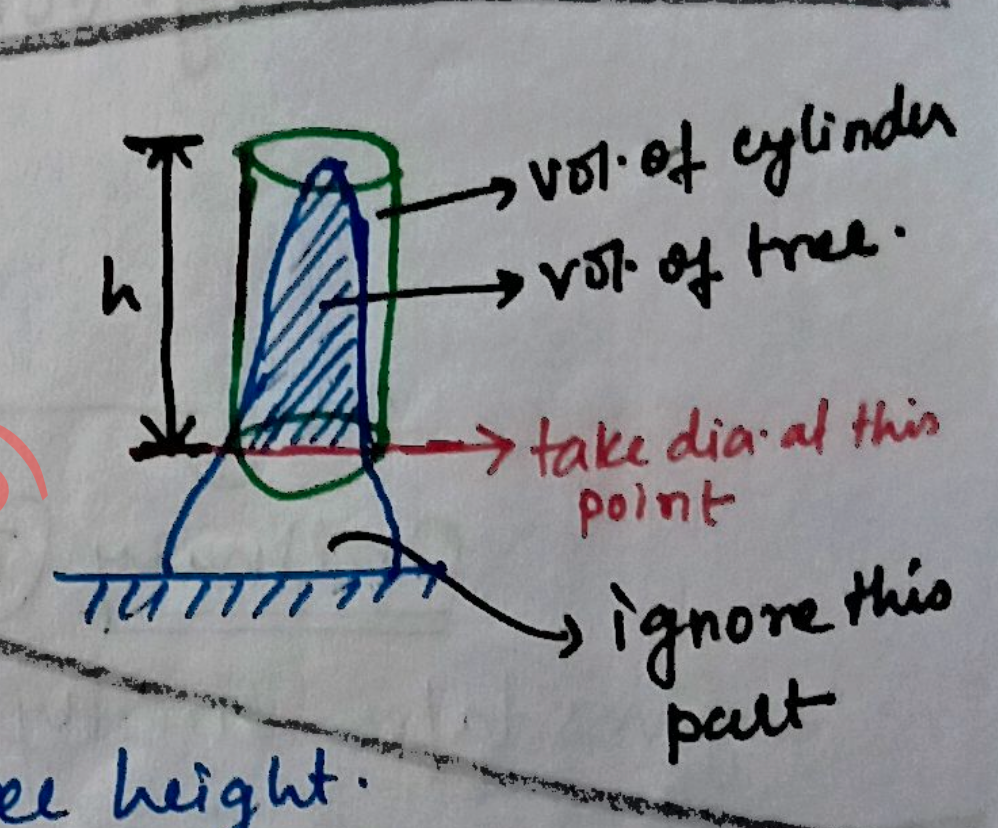 vol. of cylinder
h
vol. of tree.
take dia. at this
point
ignore this
part
height.